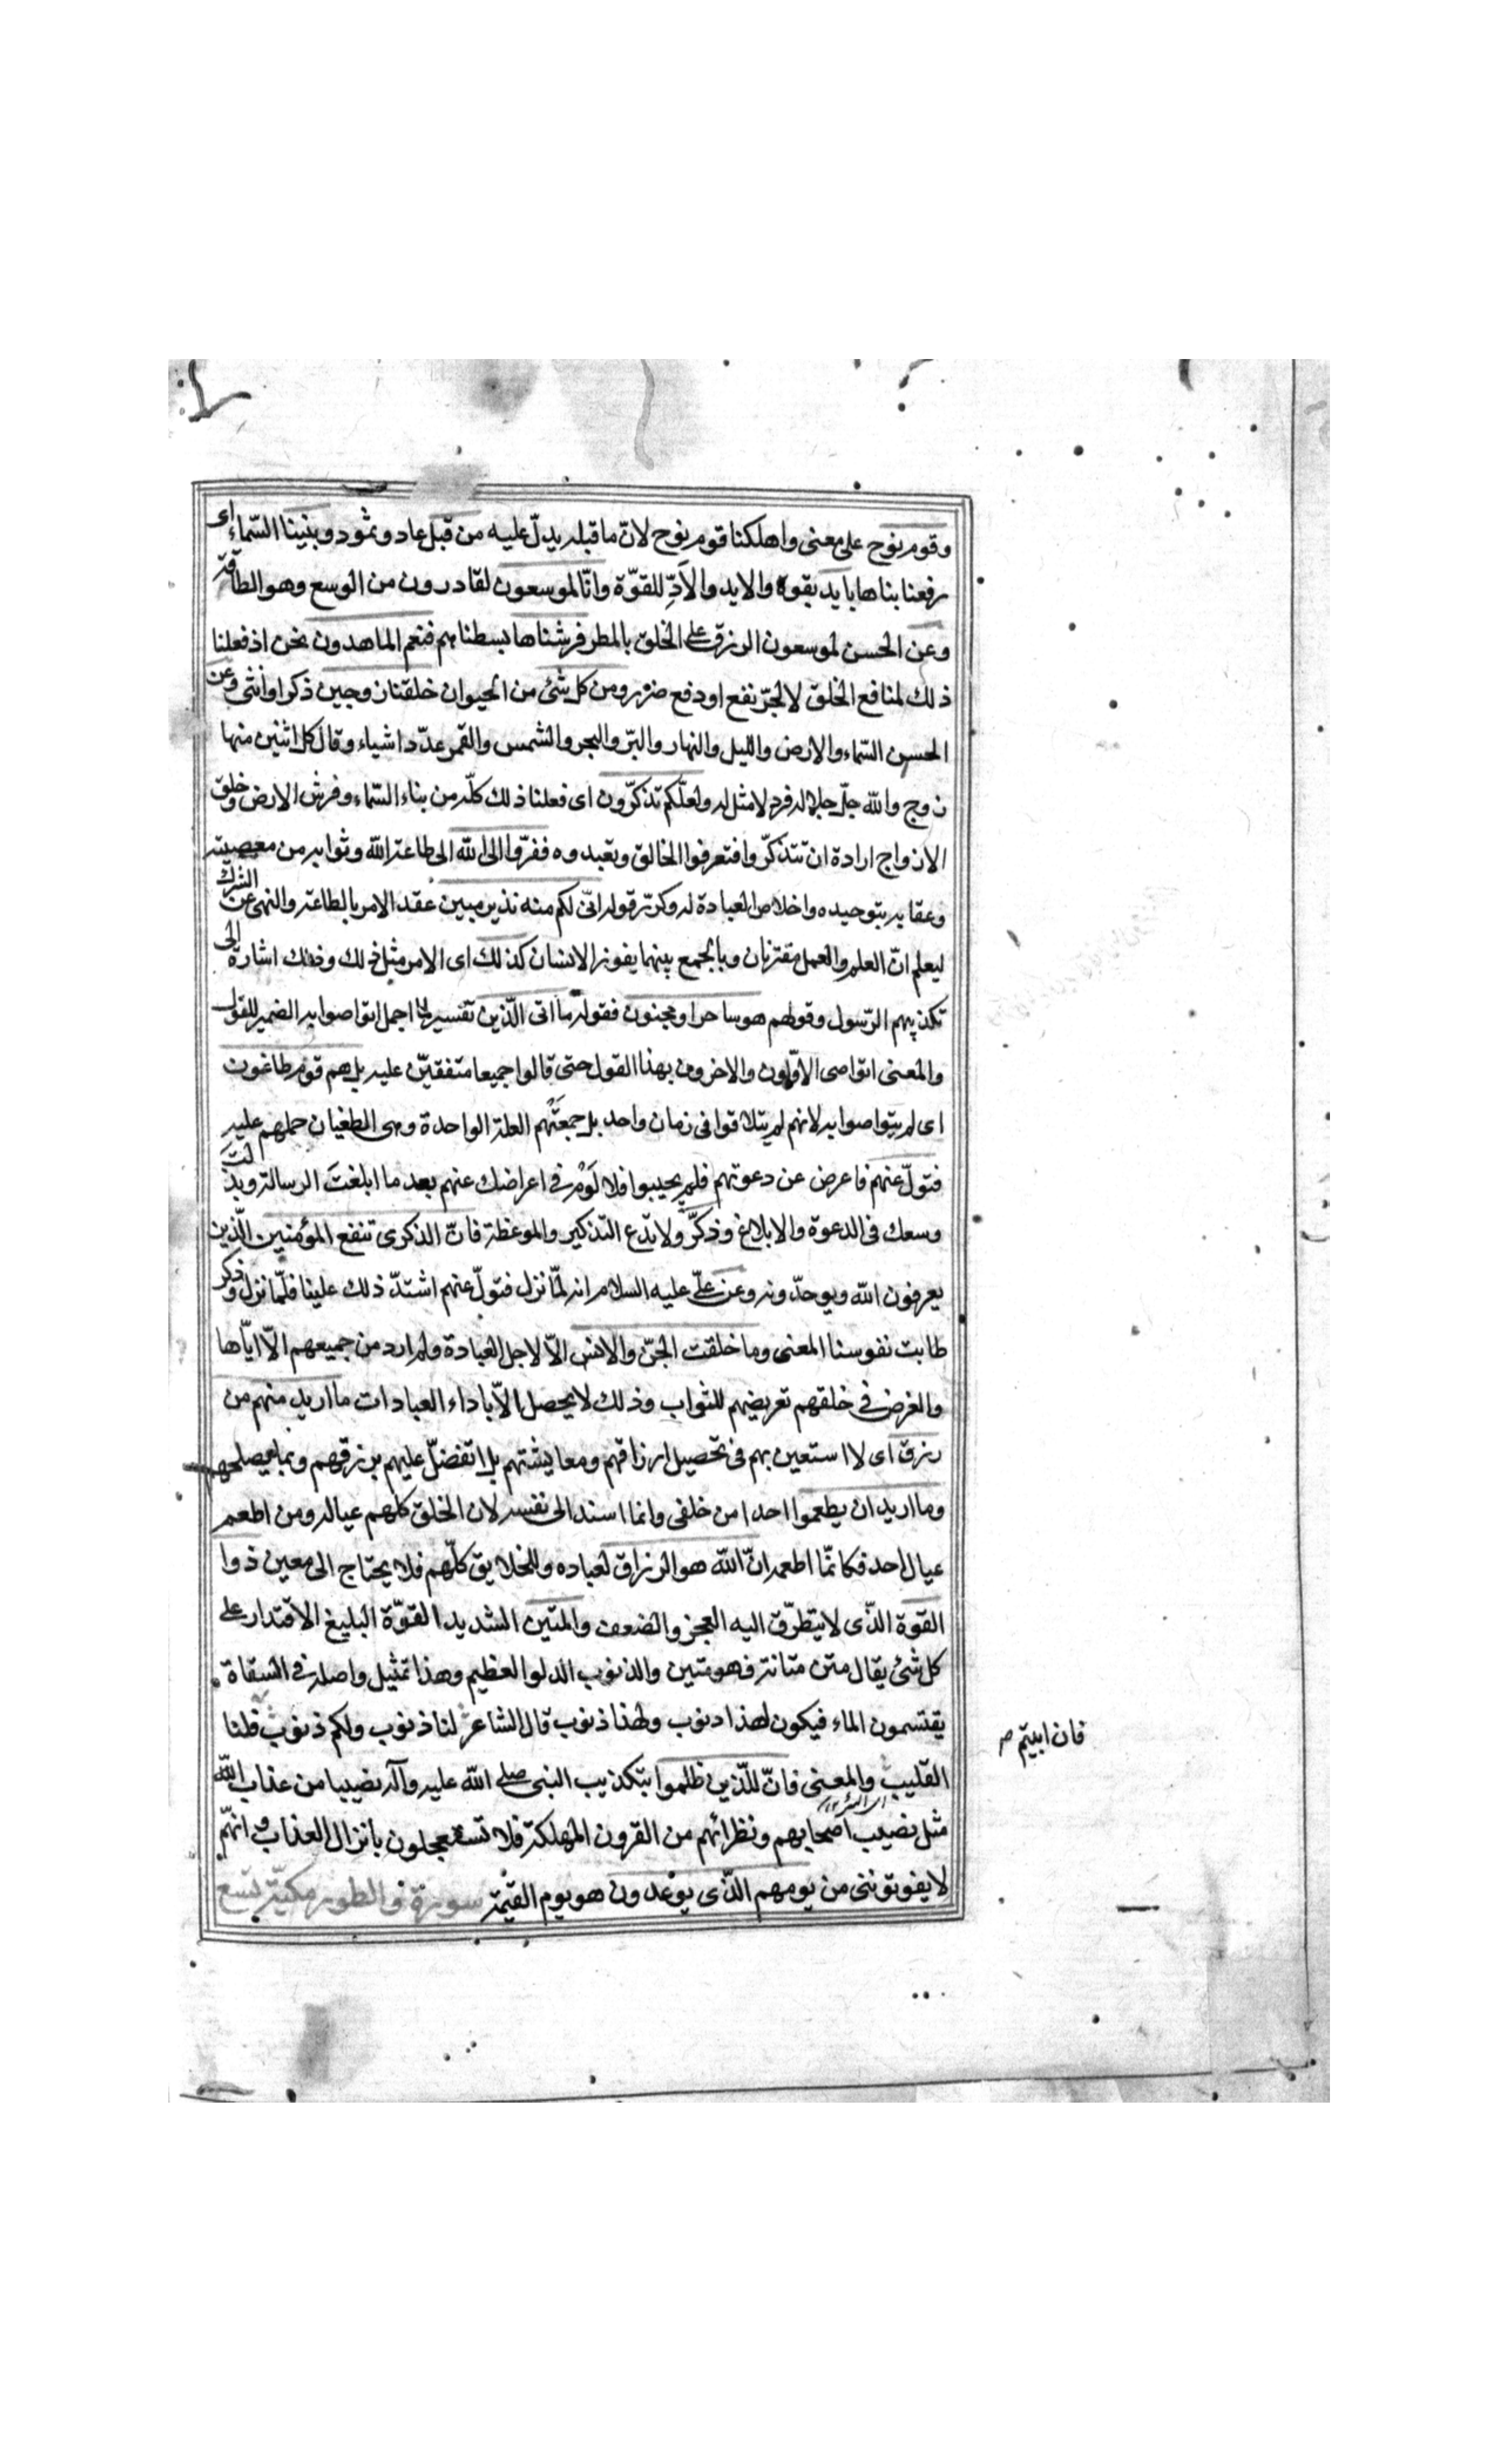 وقوم نوح على معنى واهلكنا قوم نوح لانّ ما قبله يدلّ عليه من قبل عاد وثمود وبنينا السّماء اى
رفعنا بناها بايد بقوة والايد والآدِّ للقوّة وانّا لموسعون لقادرون من الوسع وهو الطاقة
وعن الحسن لموسعون الرزق على الخلق بالمطر فرشناها بسطناهم فنعم الماهدون نحن اذ فعلنا
ذلك لمنافع الخلق لا لجرّ نفع او دفع ضرر ومن كل شئ من الحيوان خلقنا زوجين ذكرا وانثى وعن
الحسن السّماء والارض والليل والنهار والبرّ والبحر والشمس والقمر عدّد اشياء وقال كل اثنين منها
زوج والله جلّ جلاله فرد لا مثل له ولعلّكم تذكّرون اى فعلنا ذلك كلّه من بناء السّماء وفرش الارض وخلق
الازواج ارادة ان تتذكّروا فتعرفوا الخالق وتعبدوه ففرّوا الى الله الى طاعة الله وثوابه من معصيته
وعقابه بتوحيده واخلاص العبادة له وكرّر قوله انّى لكم منه نذير مبين عقد الامر بالطاعة والنهى عن الشرك
ليعلم انّ العلم والعمل مقترنان وبالجمع بينهما يفوز الانسان كذلك اى الامر مثل ذلك وذلك اشارة الى
تكذيبهم الرّسول وقولهم هو ساحر او مجنون فقوله ما اتى الّذين تفسير لما اجمل اتواصوا به الضمير للقول
والمعنى اتواصى الاوّلون والاخرون بهذا القول حتى قالوا جميعا متفقين عليه بل هم قوم طاغون
اى لم يتواصوا به لانهم لم يتلاقوا فى زمان واحد بل جمعتهم العلة الواحدة وهى الطغيان حملهم عليه
فتولّ عنهم فاعرض عن دعوتهم فلم يجيبوا فلا لَوْم فى اعراضك عنهم بعد ما ابلغت الرسالة وبذلت
وسعك فى الدعوة والابلاغ وذكّر ولا تدع التذكير والموعظة فانّ الذكرى تنفع المؤمنين الّذين
يعرفون الله ويوحدّونه وعن علّى عليه السلام انه لمّا نزل فتولّ عنهم اشتدّ ذلك علينا فلمّا نزل وذكر
طابت نفوسنا المعنى وما خلقت الجنّ والانس الّا لاجل العبادة ولم ارد من جميعهم الّا ايّاها
والغرض فى خلقهم تعريضهم للثواب وذلك لا يحصل الّا باداء العبادات ما اريد منهم من
رزق اى لا استعين بهم فى تحصيل ارزاقهم ومعايشتهم بل اتفضّل عليهم برزقهم وبما يصلحهم
وما اريد ان يطعموا احدا من خلقى وانما اسند الى نفسه لان الخلق كلهم عياله ومن اطعم
عيال احد فكانّما اطعمه انّ الله هو الرزاق لعباده وللخلايق كلّهم فلا يحتاج الى معين ذوا
القوة الذّى لا يتطرّق اليه العجز والضعف والمتين الشديد القوّة البليغ الاقتدار على
كل شئ يقال متن متانة فهو متين والذنوب الدلو العظيم وهذا تمثيل واصله فى السقاة
يقتسمون الماء فيكون لهذا ذنوب ولهذا ذنوب قال الشاعر لنا ذنوب ولكم ذنوب فلنا
فان ابيتم
القليب والمعنى فانّ للّذين ظلموا بتكذيب النبى صلى الله عليه وآله نصيبا من عذاب الله
مثل نصيب اصحابهم ونظرائهم من القرون المهلكة فلا تستعجلون بانزال العذاب انهّم
لا يفوتوننى من يومهم الذّى يوعدون هو يوم القيمة سورة والطور مكيّة تسع